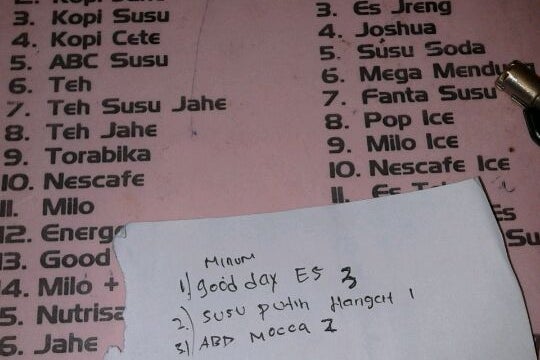 3. Kopi Susu
4. Kopi Cete
5. ABC Susu
6. Teh
7. Teh Susu Jahe
8. Teh Jahe
9. Torabika
10. Nescafe
11. Milo
12.
13. Good
14. Milo +
5.
6. Jahe
3. Es Jreng
4. Joshua
5. Susu Soda
6. Mega
7. Fanta Susu
8. Pop Ice
9. Milo Ice
10. Nescafe Ice
11. Es
Es
Su
Minum
1) good day ES 3
2) susu putih Hangat 1
3) ABD Mocca 2